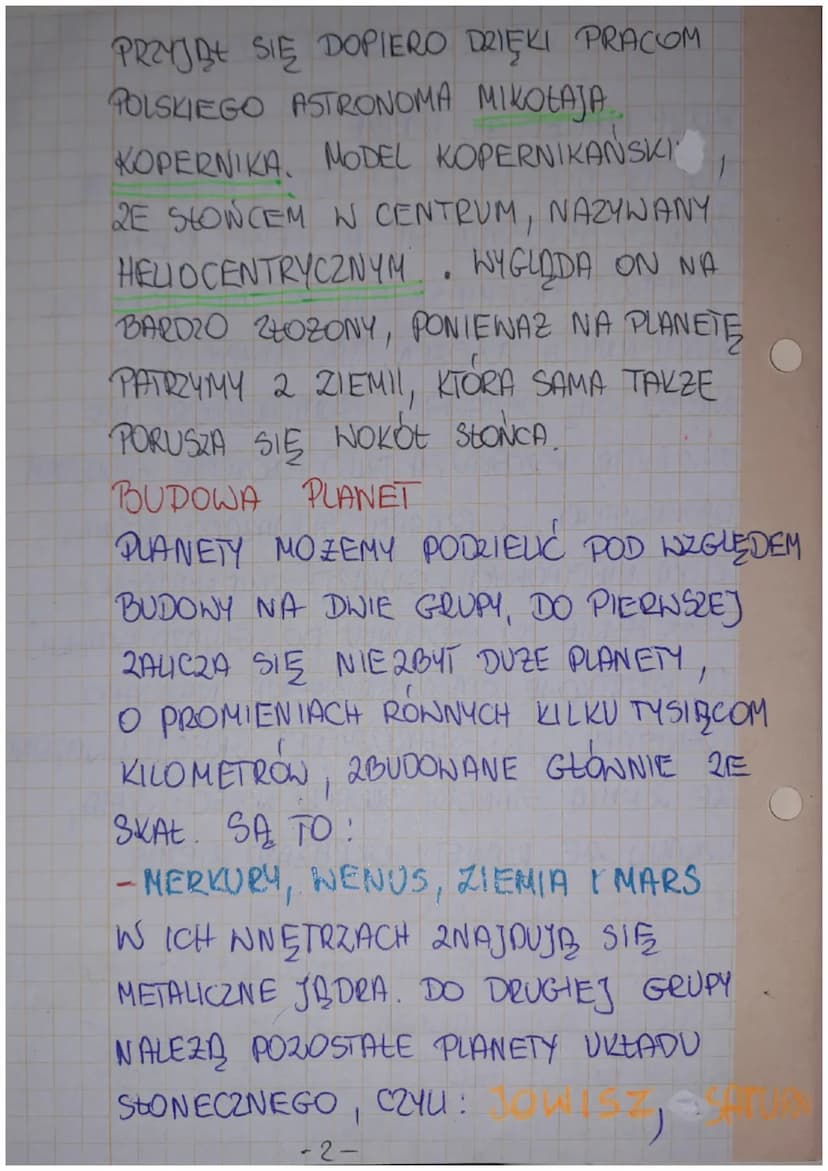 PRZYJĄŁ SIĘ DOPIERO DZIĘKI PRACOM
POLSKIEGO ASTRONOMA MIKOŁAJA
KOPERNIKA. MODEL KOPERNIKAŃSKI ,
ZE SŁOŃCEM W CENTRUM, NAZYWANY
HELIOCENTRYCZNYM . WYGLĄDA ON NA
BARDZO ZŁOŻONY, PONIEWAŻ NA PLANETĘ
PATRZYMY Z ZIEMII, KTÓRA SAMA TAKŻE
PORUSZA SIĘ WOKÓŁ SŁOŃCA.
BUDOWA PLANET
PLANETY MOŻEMY PODZIELIĆ POD WZGLĘDEM
BUDOWY NA DWIE GRUPY, DO PIERWSZEJ
ZALICZA SIĘ NIEZBYT DUŻE PLANETY,
O PROMIENIACH RÓWNYCH KILKU TYSIĄCOM
KILOMETRÓW, ZBUDOWANE GŁÓWNIE ZE
SKAŁ. SĄ TO:
- MERKURY, WENUS, ZIEMIA I MARS
W ICH WNĘTRZACH ZNAJDUJĄ SIĘ
METALICZNE JĄDRA. DO DRUGIEJ GRUPY
NALEŻĄ POZOSTAŁE PLANETY UKŁADU
SŁONECZNEGO, CZYLI: JOWISZ, SATURN
-2-